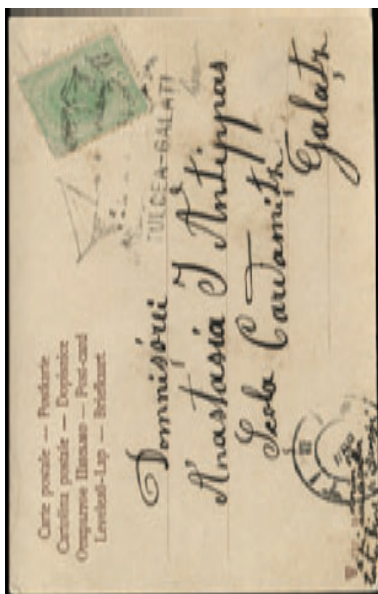 Carte postale — Postkarte
Cartolina postale — Dopisnice
Открытое Письмо — Post-card
Levelező-Lap — Briefkort
TULCEA-GALATI
Domnișórei
Anastasia J Antippas
Scola Cardamitz
Galatz